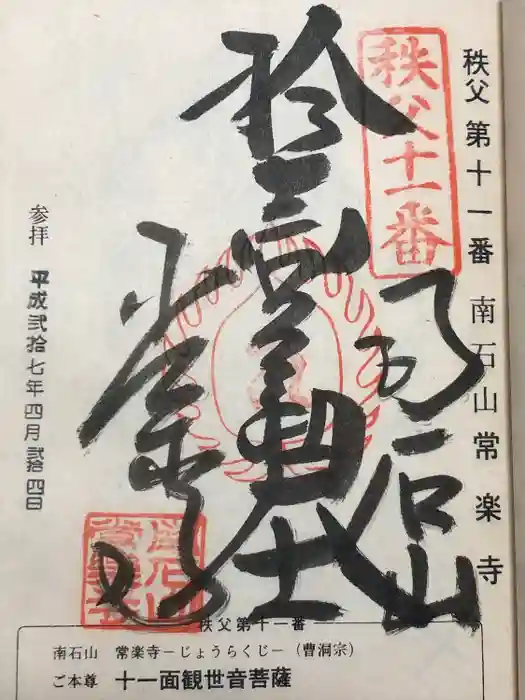 秩父 第十一番 南石山 常楽寺
秩父十一番
南石山
常楽寺
参拝 平成弐拾七年四月弐拾四日
南石山常楽寺
秩父第十一番
南石山 常楽寺－じょうらくじ－(曹洞宗)
ご本尊 十一面観世音菩薩